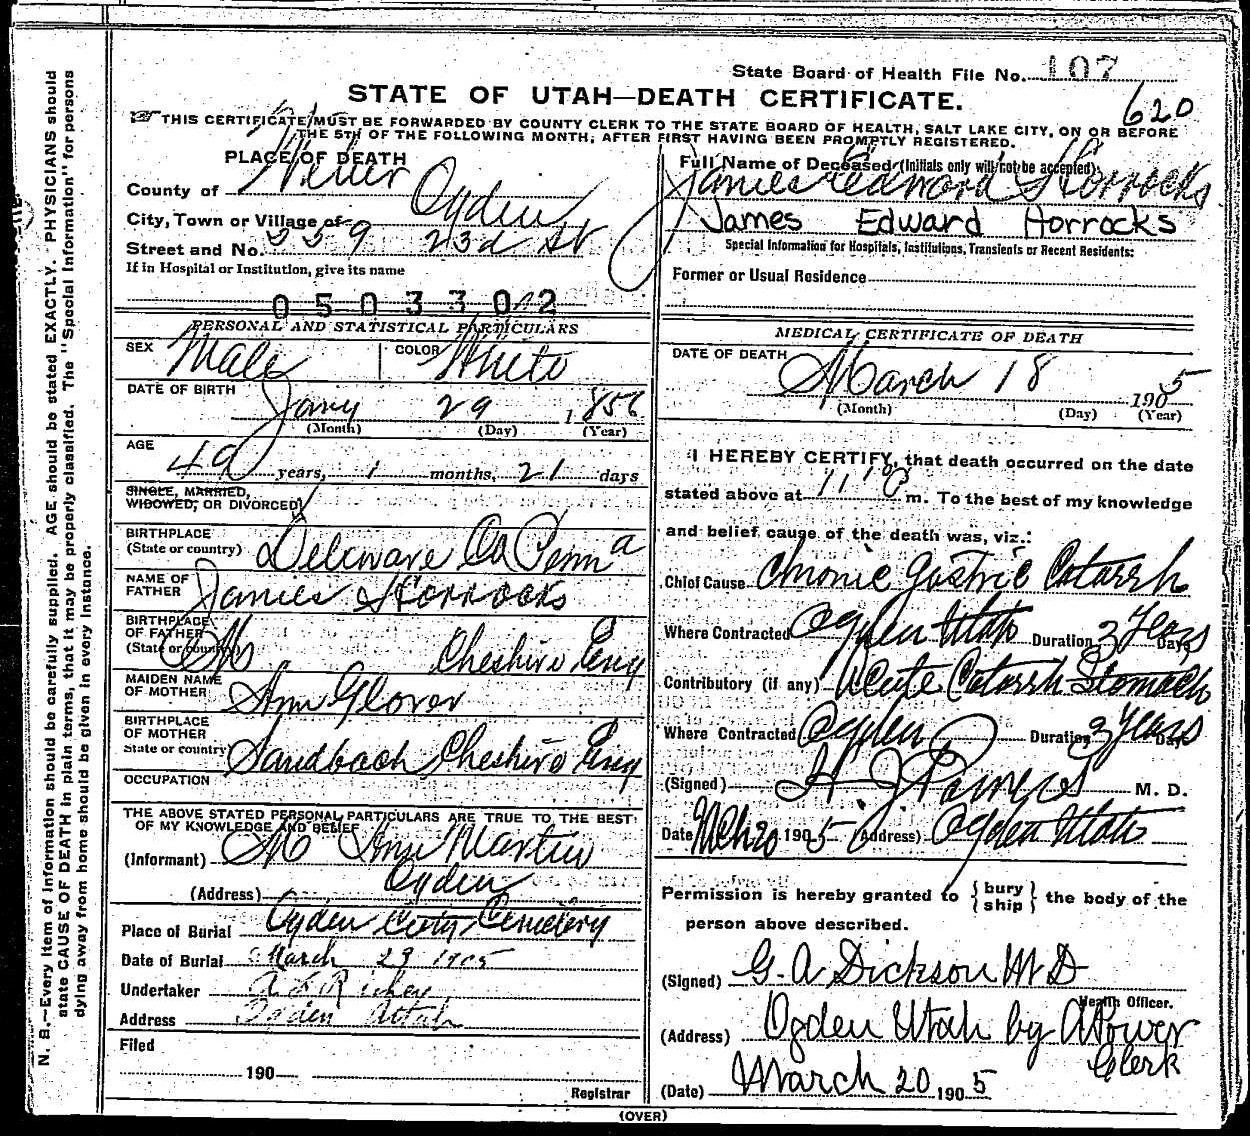 State Board of Health File No. 107
620
STATE OF UTAH—DEATH CERTIFICATE.
THIS CERTIFICATE MUST BE FORWARDED BY COUNTY CLERK TO THE STATE BOARD OF HEALTH, SALT LAKE CITY, ON OR BEFORE
THE 5TH OF THE FOLLOWING MONTH, AFTER FIRST HAVING BEEN PROMPTLY REGISTERED.
PLACE OF DEATH
County of Weber
City, Town or Village of Ogden
Street and No. 559 23d St
If in Hospital or Institution, give its name
0503302
PERSONAL AND STATISTICAL PARTICULARS
SEX Male COLOR White
DATE OF BIRTH
Jany 29 1856
(Month) (Day) (Year)
AGE
49 years, 1 months, 21 days
SINGLE, MARRIED,
WIDOWED, OR DIVORCED
BIRTHPLACE
(State or country) Delaware Co Penna
NAME OF
FATHER James Horrocks
BIRTHPLACE
OF FATHER
(State or country) Cheshire Eng
MAIDEN NAME
OF MOTHER Ann Glover
BIRTHPLACE
OF MOTHER
State or country) Sandbach Cheshire Eng
OCCUPATION
THE ABOVE STATED PERSONAL PARTICULARS ARE TRUE TO THE BEST
OF MY KNOWLEDGE AND BELIEF
(Informant) Ann Martin
(Address) Ogden
Place of Burial Ogden City Cemetery
Date of Burial March 23 1905
Undertaker
Address Ogden Utah
Filed
190
Registrar
Full Name of Deceased (Initials only will not be accepted)
James Edward Horrocks
James Edward Horrocks
Special Information for Hospitals, Institutions, Transients or Recent Residents:
Former or Usual Residence
MEDICAL CERTIFICATE OF DEATH
DATE OF DEATH
March 18 1905
(Month) (Day) (Year)
I HEREBY CERTIFY, that death occurred on the date
stated above at 11 10 P m. To the best of my knowledge
and belief cause of the death was, viz.:
Chief Cause Chronic Gastric Catarrh
Where Contracted Ogden Utah Duration 3 Years Days
Contributory (if any) Acute Catarrh Stomach
Where Contracted Ogden Duration 3 Years Days
(Signed) H. J. Powers M. D.
Date Mch 20 1905 (Address) Ogden Utah
Permission is hereby granted to { bury
ship } the body of the
person above described.
(Signed) G. A Dickson M D
Health Officer.
(Address) Ogden Utah by A Power
Clerk
(Date) March 20 1905
(OVER)
N. B.—Every item of information should be carefully supplied. AGE should be stated EXACTLY. PHYSICIANS should
state CAUSE OF DEATH in plain terms, that it may be properly classified. The "Special Information" for persons
dying away from home should be given in every instance.